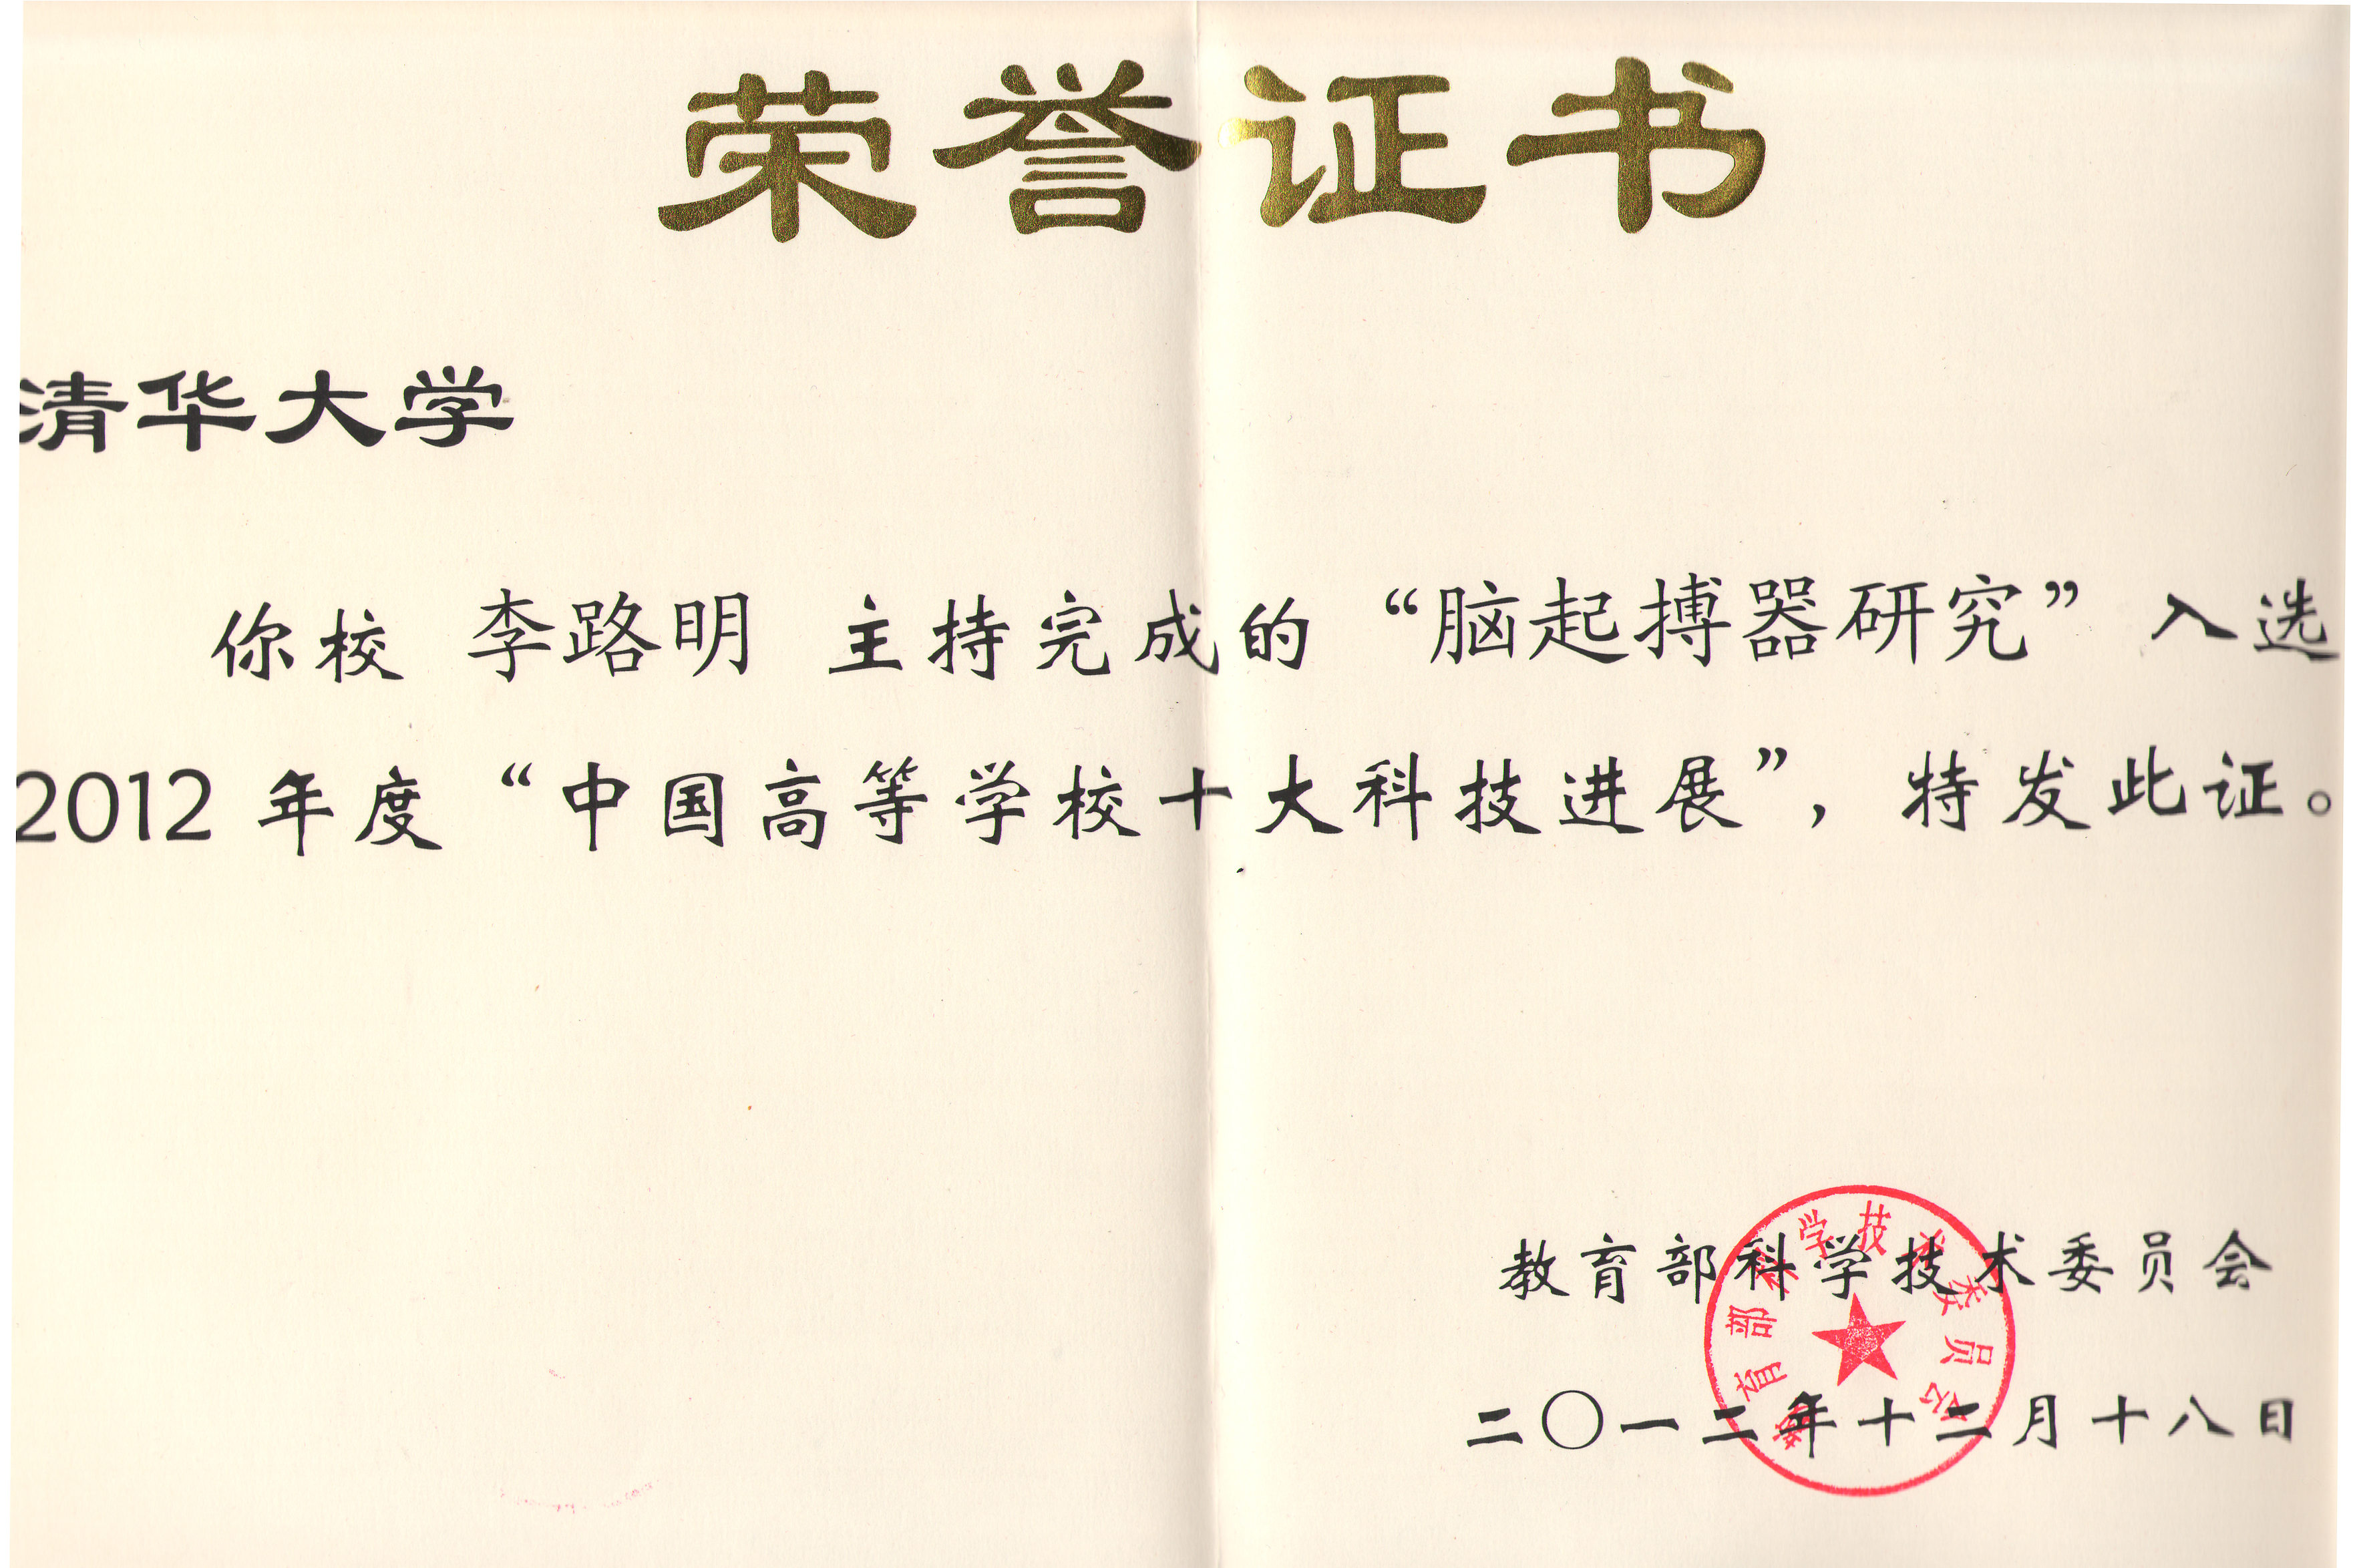 荣誉证书
清华大学
你校 李路明 主持完成的 “脑起搏器研究” 入选
2012 年度 “中国高等学校十大科技进展”, 特发此证。
教育部科学技术委员会
教育部科学技术委员会
二〇一二年十二月十八日